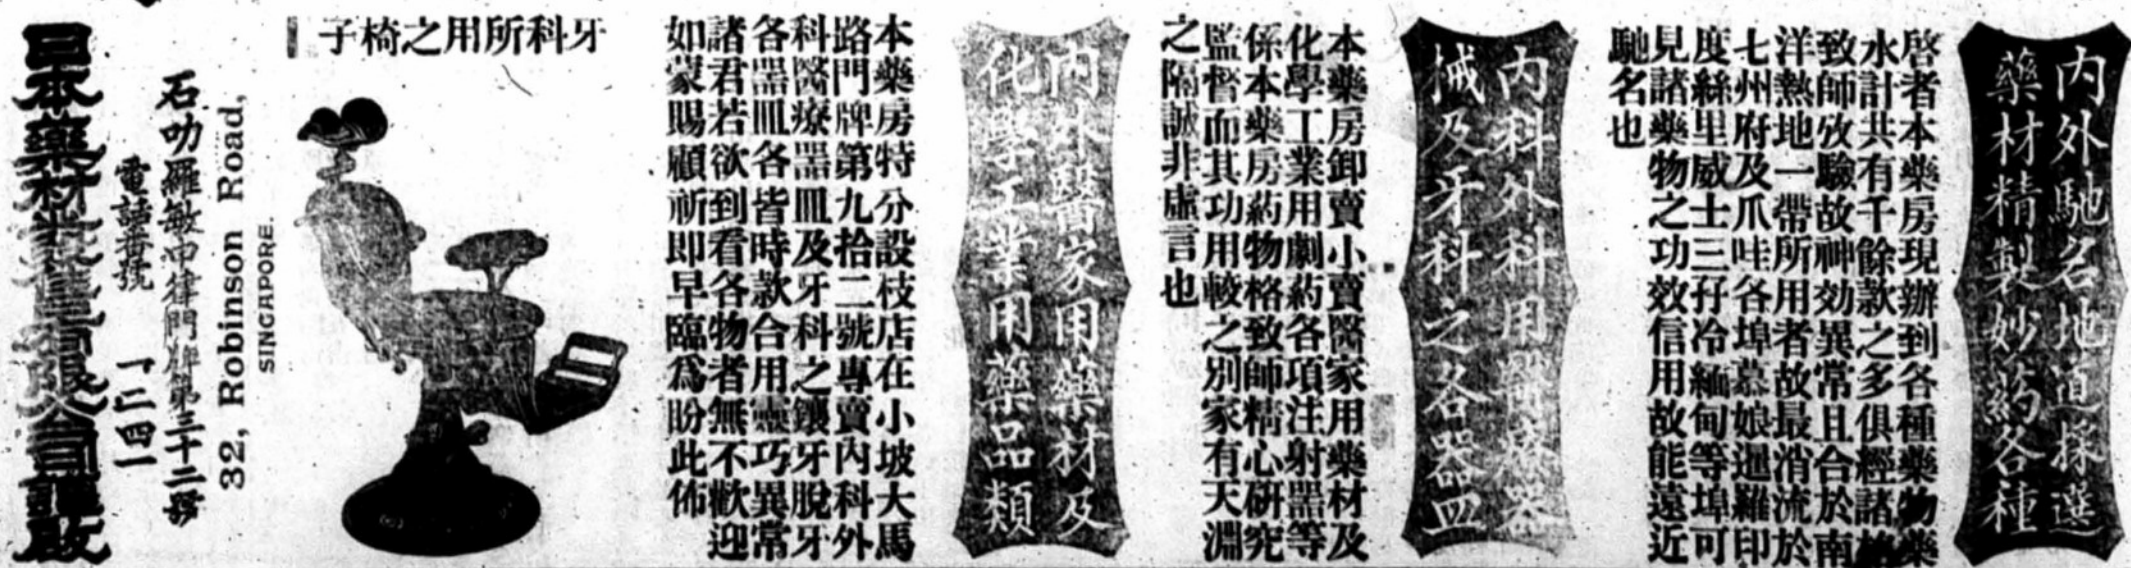 內外馳名地道採選
藥材精製妙葯各種
啓者本藥房現辦到各種藥物藥
水計共有千餘款之多俱經諸格
致師攷驗故神効異常且合於南
洋熱地一帶所用者故最消流於
七州府及爪哇各埠慕娘暹羅印
度絲里威士三孖冷緬甸等埠可
見諸藥物之功效信用故能遠近
馳名也
內科外科用醫療器
械及牙科之各器皿
本藥房卸賣小賣醫家用藥材及
化學工業用劇葯各項注射噐等
係本藥房葯物格致師精心研究
監督而其功用較之別家有天淵
之隔誠非虛言也
內外醫家用藥材及
化學工業用藥品類
本藥房特分設枝店在小坡大馬
路門牌第九拾二號專賣內科外
科醫療噐皿及牙科之鑲牙脫牙
各噐皿各皆時款合用靈巧異常
諸君若欲到看各物者無不歡迎
如蒙賜顧祈即早臨為盼此佈
牙科所用之椅子
32, Robinson Road,
SINGAPORE.
石叻羅敏申律門牌第三十二號
電話番號 一二四一
日本藥材 有限公司謹啟